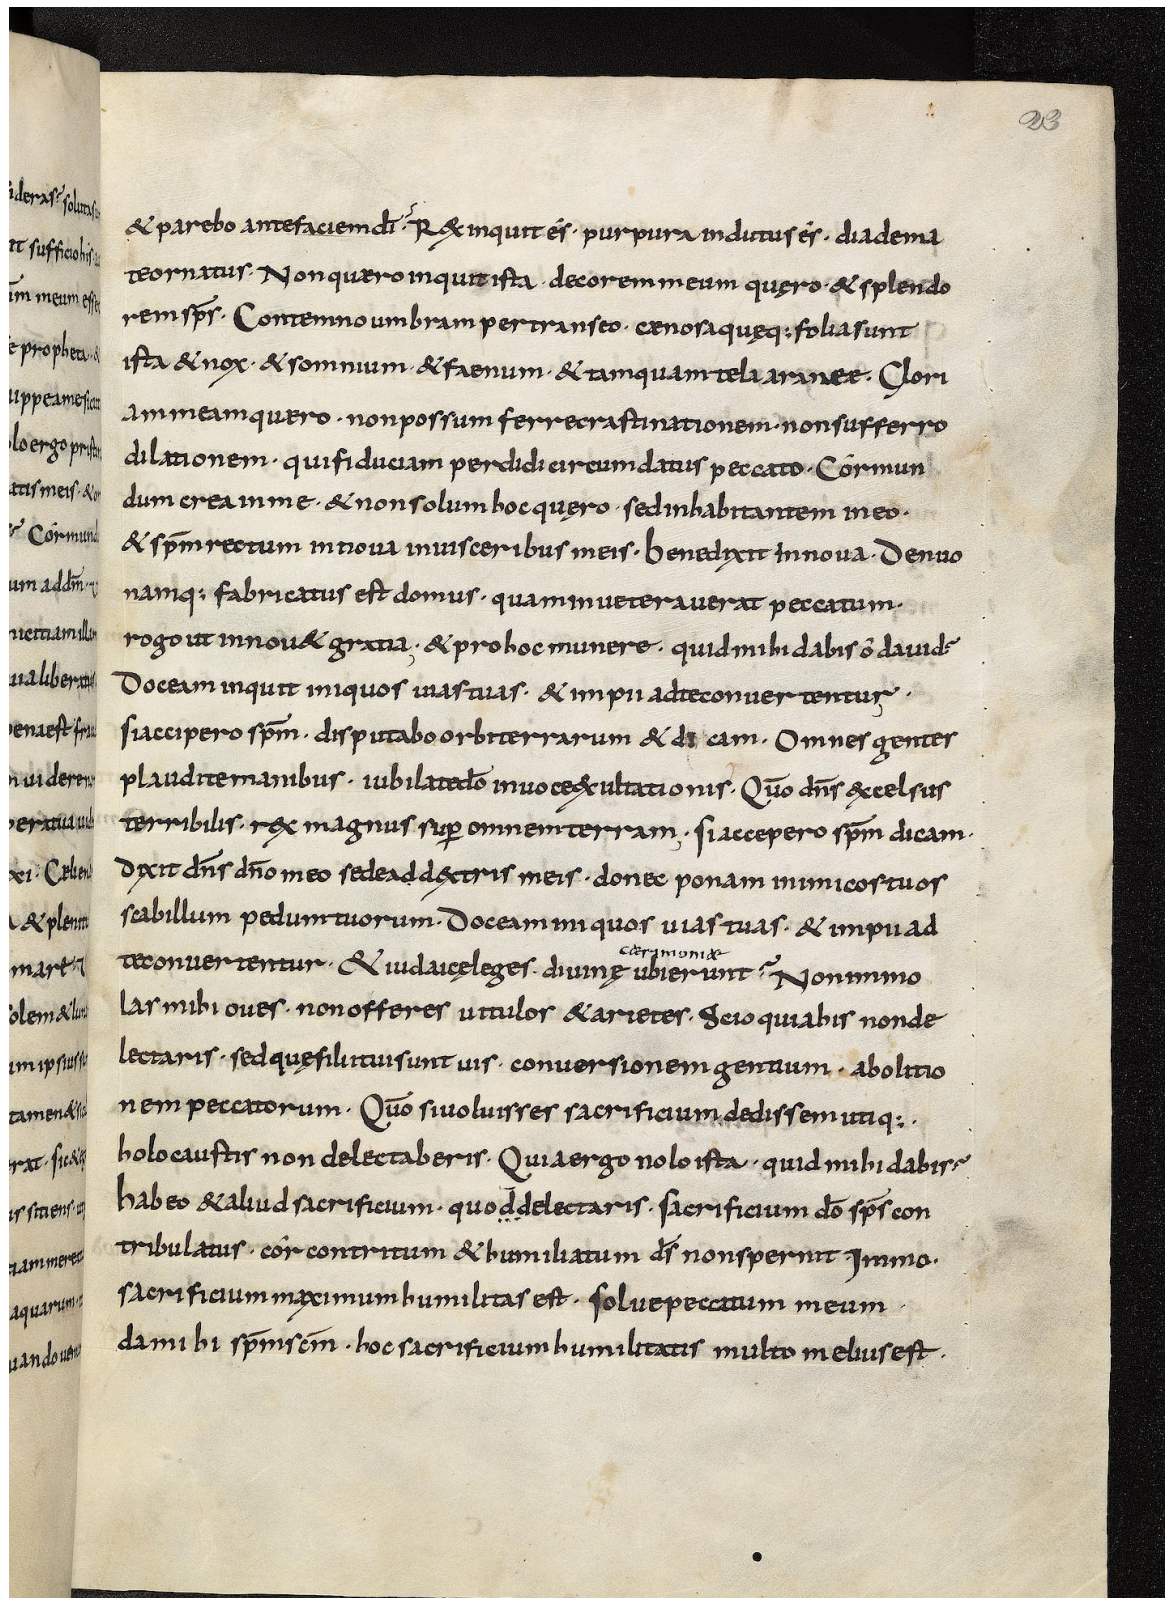 23
& parebo ante faciem dī? R&x inquit és · purpura indutus és · diadema
te ornatus · Non quero inquit ista · decorem meum quęro · & splendo
rem sp̄s · Contemno umbram pertranseo · cenosa quęq: folia sunt
ista & nox · & somnium · & faenum · & tamquam tela araneæ · Glori
am meam quero · non possum ferre crastinationem · non sufferro
dilationem · qui fiduciam perdidi circumdatus peccato · Cór mun
dum crea in me · & non solum hoc quęro · sed inhabitantem in eo ·
& sp̄m rectum in nova in visceribus meis · benedixit Innova · Denuo
namq: fabricatus est domus · quam inveteraverat peccatum ·
rogo ut innov& gratia · & pro hoc munere · quid mihi dabis ó david?
Doceam inquit iniquos vias tuas · & impii ad te convertentur ·
si accipero sp̄m · disputabo orbiterrarum & di cam · Omnes gentes
plaudite manibus · iubilate dō in voce &xultationis · Quō dn̄s &xcelsus
terribilis · r&x magnus sup̄ omnem terram · si accepero sp̄m dicam ·
Dixit dn̄s dn̄o meo sede ad d&xtris meis · donec ponam inimicos tuos
scabillum pedum tuorum · Doceam iniquos vias tuas · & impii ad
te convertentur · & iudaicę leges · divinę ubi erunt? Non immo
cærimoniæ
las mihi oves · non offeres vitulos & arietes · Scio quia bis non de
lectaris · sed quę filii tui sunt vis · conversionem gentium · abolitio
nem peccatorum · Quō si voluisses sacrificium dedissem utiq: ·
holocaustis non delectaberis · Quia ergo nolo ista · quid mihi dabis?
habeo & aliud sacrificium · quod delectaris · sacrificium dō sp̄s con
tribulatus · cór contritum & humiliatum d̄s non spernit Immo ·
sacrificium maximum humilitas est · solve peccatum meum ·
da mihi sp̄m sc̄m · hoc sacrificium humilitatis multo melius est ·